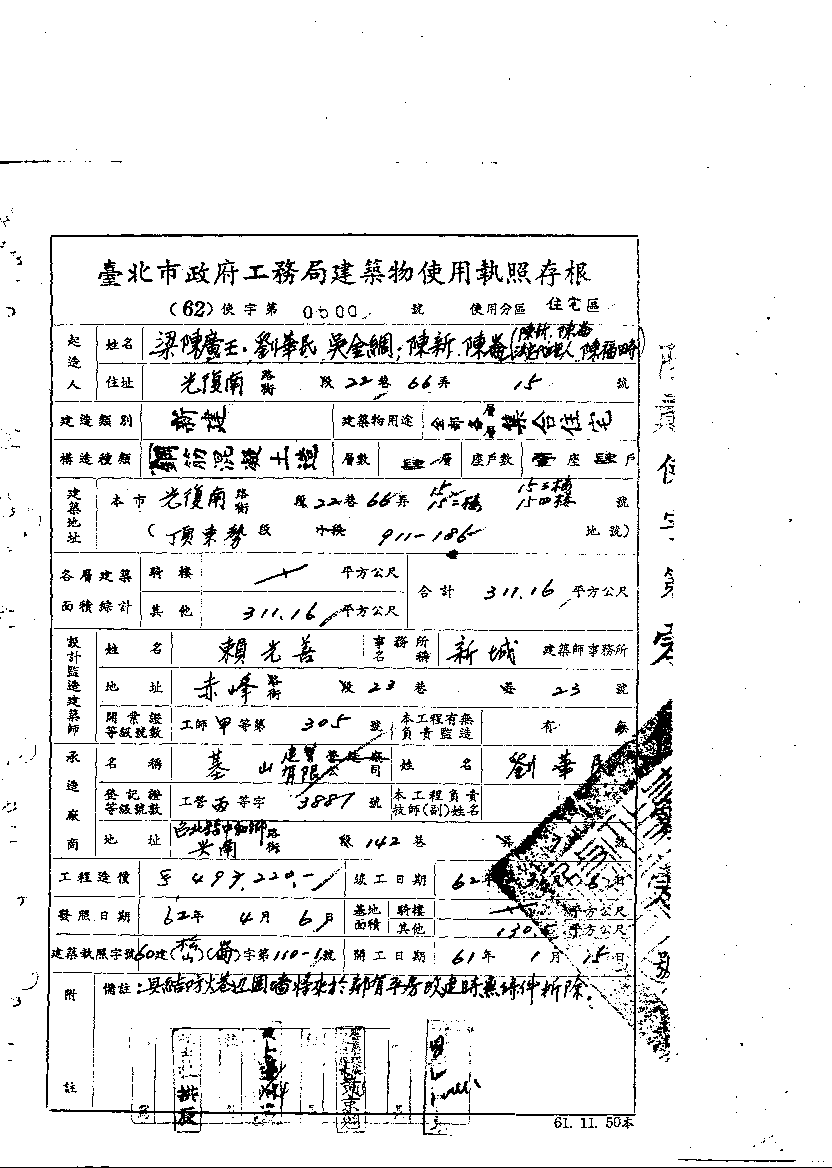 臺北市政府工務局建築物使用執照存根
(62) 使字第 0500 號 使用分區 住宅區
起造人 姓名 梁陳廣王.劉華民.吳金綢.陳新.陳
住址 光復南 路街 段 22 巷 66 弄 15 號
建造類別 新建 建築物用途 全部各層層 集合住宅
構造種類 鋼筋混凝土造 層數 肆 層 座戶數 壹 座 肆 戶
建築地址 本市 光復南 路街 段 22 巷 66 弄 15 15二樓 15三樓 15四樓 號
(頂東勢 段 小段 911-186 地號)
各層建築面積綜計 騎樓 平方公尺 合計 311.16 平方公尺
其他 311.16 平方公尺
設計監造建築師 姓名 賴光善 事務所名稱 新城 建築師事務所
地址 赤峰 路街 段 23 巷 23 號
開業證等級號數 工師 甲 等第 305 號 本工程有無負責監造 有 無
承造廠商 名稱 基山 有限公司 姓名 劉華
登記證等級號數 工營 丙 等字 3887 號 本工程負責技師(副)姓名
地址 台北縣中和鄉 路街 段 142 巷 號
工程造價 497,220.- 竣工日期 62年
發照日期 62年 4月 6日 基地面積 騎樓 平方公尺
其他 130. 平方公尺
建築執照字號 60建(松山)( )字第110-1號 開工日期 61年 1月 15日
附註 備註:具結防火巷 圍墻將來於鄰有平房改建時無條件拆除.
61. 11. 50本